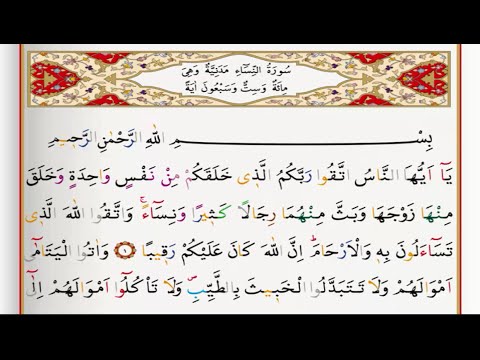 سُورَةُ النِّسَٓاءِ مَدَنِيَّةٌ وَهِيَ
مِائَةٌ وَسِتٌّ وَسَبْعُونَ اٰيَةً
بِسْــــــــمِ اللّٰهِ الرَّحْمٰنِ الرَّحٖيمِ
يَٓا اَيُّهَا النَّاسُ اتَّقُوا رَبَّكُمُ الَّذٖي خَلَقَكُمْ مِنْ نَفْسٍ وَاحِدَةٍ وَخَلَقَ
مِنْهَا زَوْجَهَا وَبَثَّ مِنْهُمَا رِجَالًا كَثٖيرًا وَنِسَٓاءًۚ وَاتَّقُوا اللّٰهَ الَّذٖي
تَسَٓاءَلُونَ بِهٖ وَالْاَرْحَامَۜ اِنَّ اللّٰهَ كَانَ عَلَيْكُمْ رَقٖيبًا ﴿١﴾ وَاٰتُوا الْيَتَامٰٓى
اَمْوَالَهُمْ وَلَا تَتَبَدَّلُوا الْخَبٖيثَ بِالطَّيِّبِۖ وَلَا تَأْكُلُٓوا اَمْوَالَهُمْ اِلٰٓى